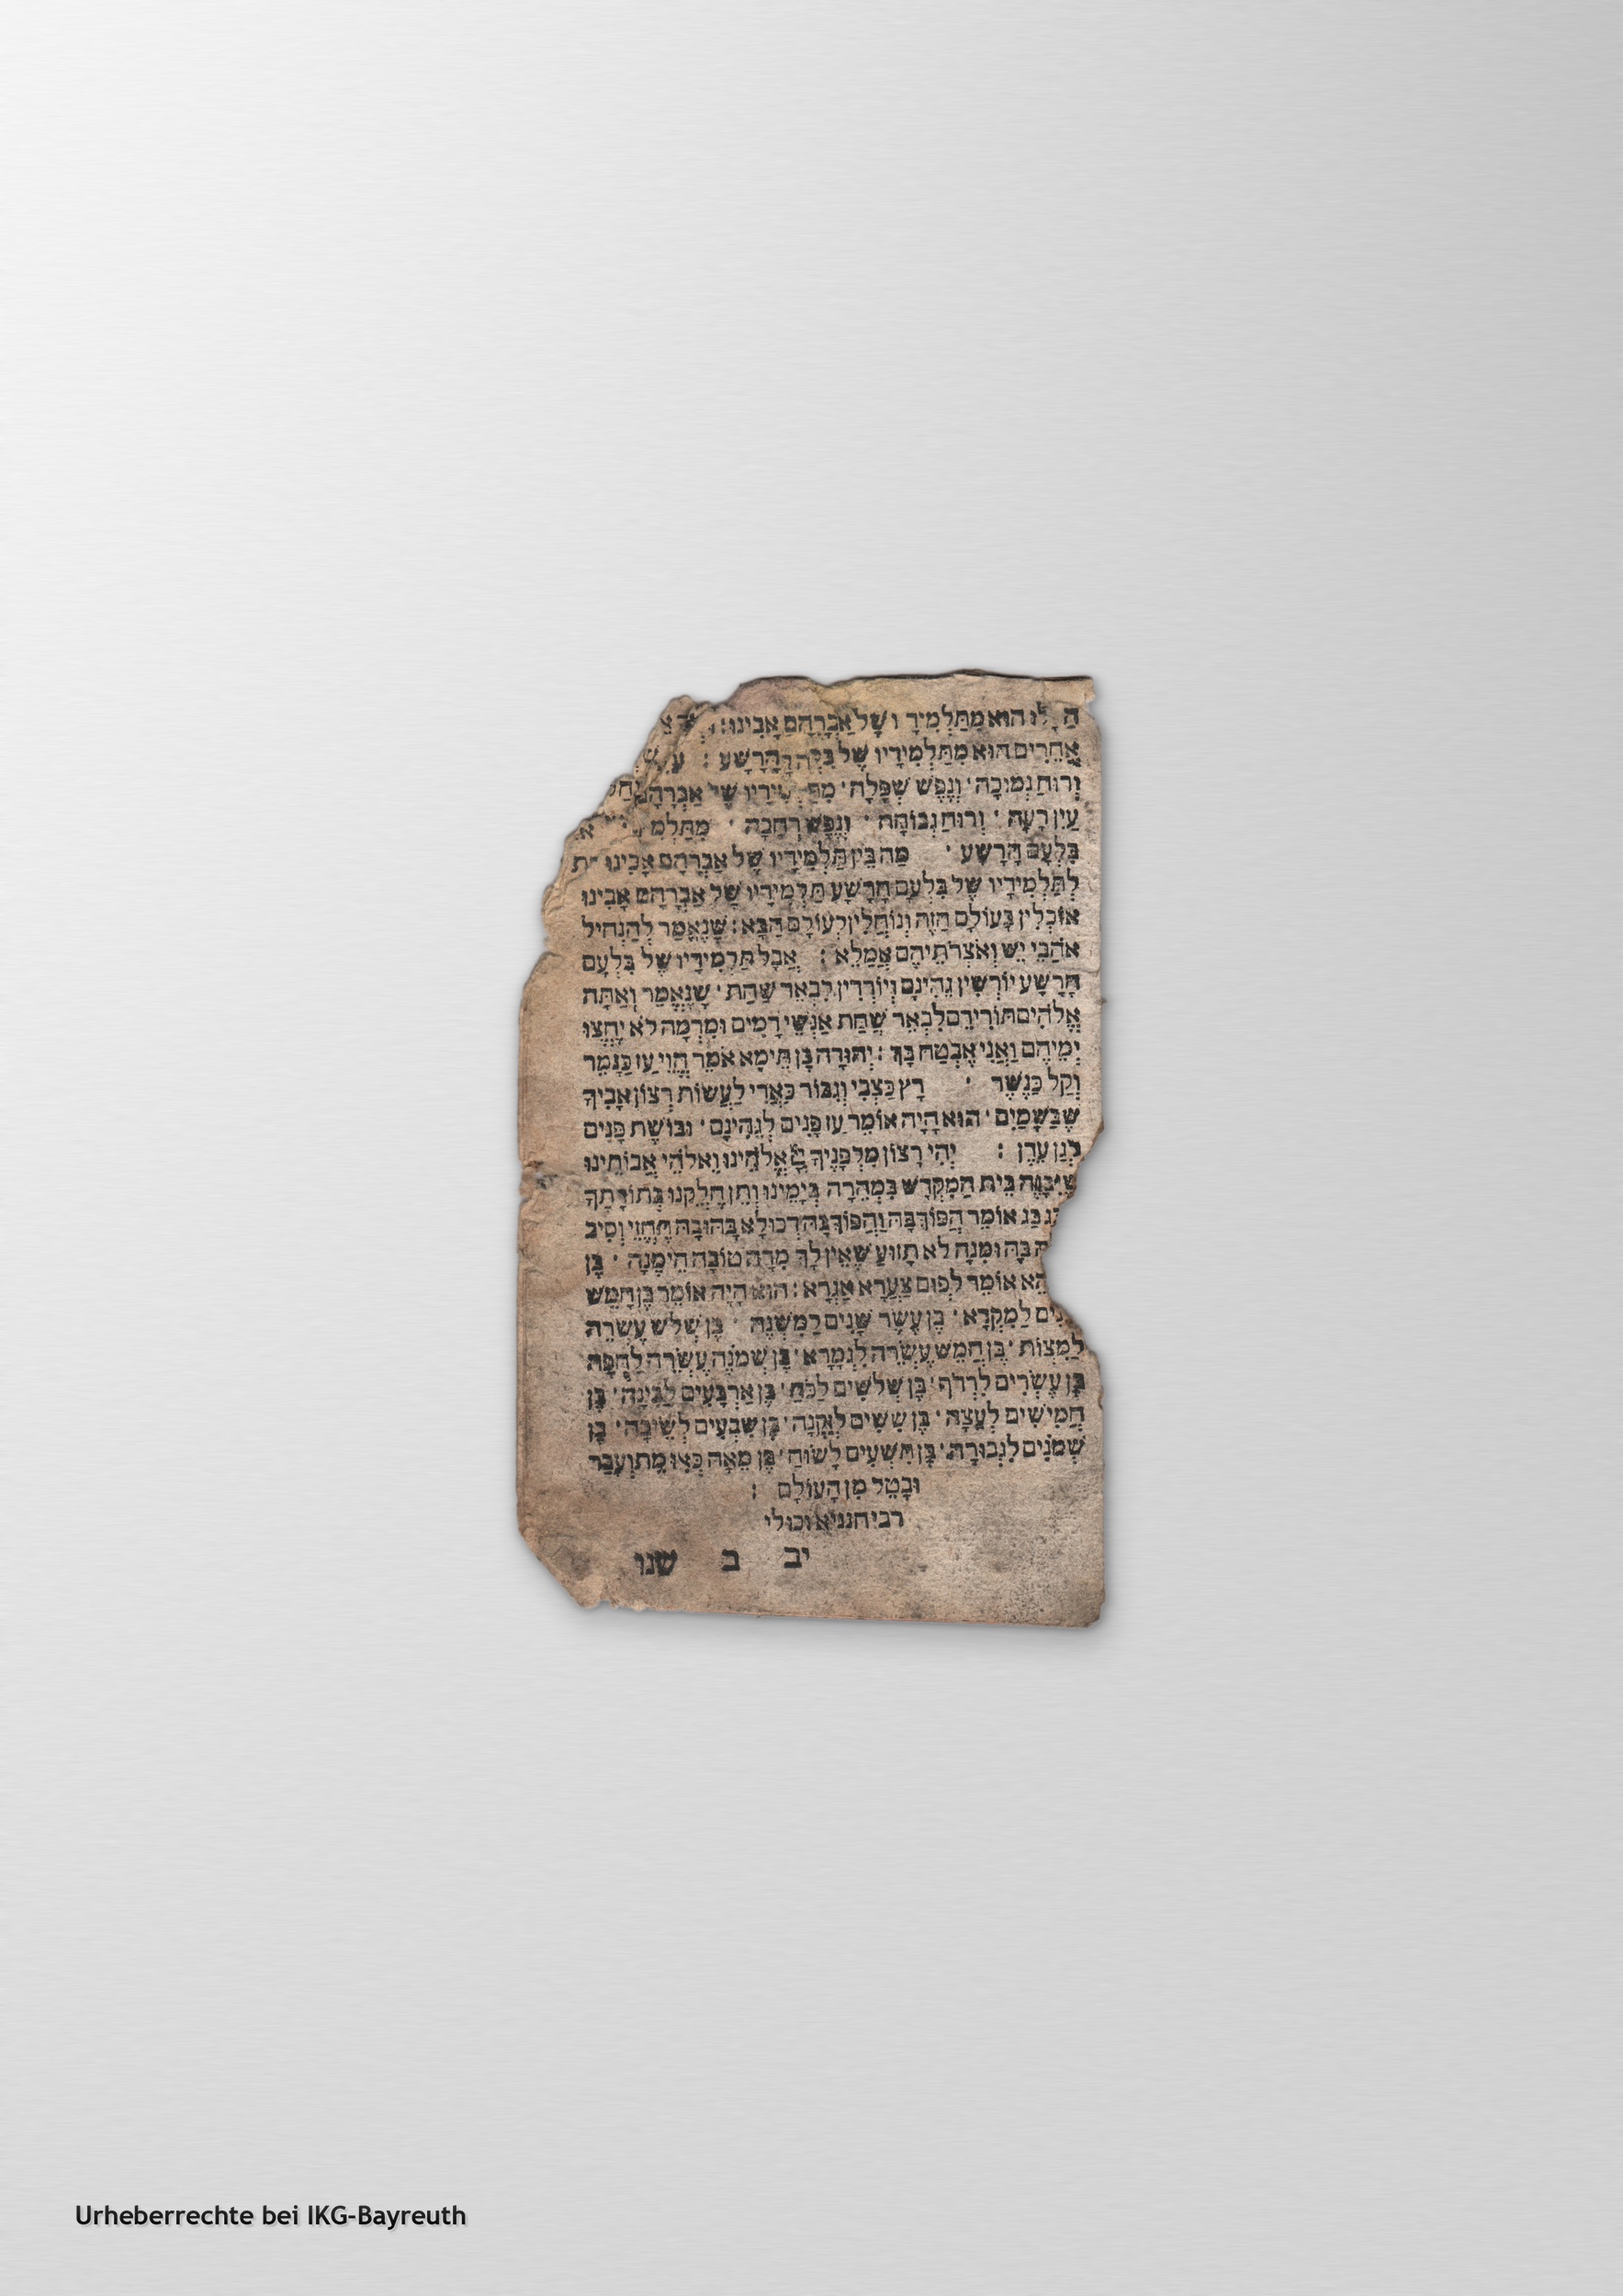 הוא מתלמידיו של אברהם אבינו:
אֲחֵרִים הוּא מִתַּלְמִידָיו שֶׁל הָרָשָׁע :
וְרוּחַ נְמוּכָה · וְנֶפֶשׁ שְׁפָלָה ·
עַיִן רָעָה · וְרוּחַ גְבוֹהָה · וְנֶפֶשׁ רְחָבָה ·
בִּלְעָם הָרָשָׁע · מַה בֵּין תַּלְמִידָיו שֶׁל אַבְרָהָם אָבִינוּ
לְתַלְמִידָיו שֶׁל בִּלְעָם הָרָשָׁע תַּלְמִידָיו שֶׁל אַבְרָהָם אָבִינוּ
אוֹכְלִין בָּעוֹלָם הַזֶּה וְנוֹחֲלִין לָעוֹלָם הַבָּא : שֶׁנֶּאֱמַר לְהַנְחִיל
אֹהֲבַי יֵשׁ וְאֹצְרֹתֵיהֶם אֲמַלֵּא : אֲבָל תַּלְמִידָיו שֶׁל בִּלְעָם
הָרָשָׁע יוֹרְשִׁין גֵּהִינָּם וְיוֹרְדִין לִבְאֵר שַׁחַת · שֶׁנֶּאֱמַר וְאַתָּה
אֱלֹהִים תּוֹרִידֵם לִבְאֵר שַׁחַת אַנְשֵׁי דָמִים וּמִרְמָה לֹא יֶחֱצוּ
יְמֵיהֶם וַאֲנִי אֶבְטַח בָּךְ : יְהוּדָה בֶּן תֵּימָא אֹמֵר הֱוֵי עַז כַּנָּמֵר
וְקַל כַּנֶּשֶׁר · רָץ כַּצְּבִי וְגִבּוֹר כָּאֲרִי לַעֲשׂוֹת רְצוֹן אָבִיךָ
שֶׁבַּשָּׁמַיִם · הוּא הָיָה אוֹמֵר עַז פָּנִים לְגֵהִינָּם · וּבוֹשֶׁת פָּנִים
לְגַן עֵדֶן : יְהִי רָצוֹן מִלְּפָנֶיךָ יְיָ אֱלֹהֵינוּ וֵאלֹהֵי אֲבוֹתֵינוּ
שֶׁיִּבָּנֶה בֵּית הַמִּקְדָּשׁ בִּמְהֵרָה בְּיָמֵינוּ וְתֵן חֶלְקֵנוּ בְּתוֹרָתֶךָ
בַּג אוֹמֵר הֲפוֹךְ בָּהּ וַהֲפוֹךְ בָּהּ דְּכוּלָּא בָּהּ וּבָהּ תֶּחֱזֵי וְסִיב
בָּהּ וּמִנָּהּ לֹא תָזוּעַ שֶׁאֵין לְךָ מִדָּה טוֹבָה הֵימֶנָּה · בֶּן
הֵא אוֹמֵר לְפוּם צַעֲרָא אַגְרָא : הוּא הָיָה אוֹמֵר בֶּן חָמֵשׁ
לַמִּקְרָא · בֶּן עֶשֶׂר שָׁנִים לַמִּשְׁנָה · בֶּן שְׁלֹשׁ עֶשְׂרֵה
לַמִּצְוֹת · בֶּן חֲמֵשׁ עֶשְׂרֵה לִגְמָרָא · בֶּן שְׁמֹנֶה עֶשְׂרֵה לַחֻפָּה
בֶּן עֶשְׂרִים לִרְדֹּף · בֶּן שְׁלֹשִׁים לַכֹּחַ · בֶּן אַרְבָּעִים לַבִּינָה · בֶּן
חֲמִישִׁים לְעֵצָה · בֶּן שִׁשִּׁים לְזִקְנָה · בֶּן שִׁבְעִים לְשֵׂיבָה · בֶּן
שְׁמֹנִים לִגְבוּרָה · בֶּן תִּשְׁעִים לָשׁוּחַ · בֶּן מֵאָה כְּאִלּוּ מֵת וְעָבַר
וּבָטֵל מִן הָעוֹלָם :
רבי חנניא וכולי
יב ב שנו
Urheberrechte bei IKG-Bayreuth